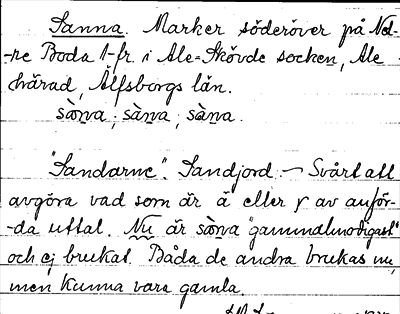 Sanna. Marker söderöver på Ned-
-re Boda 1-fr. i Ale-Skövde socken, Ale
härad, Älfsborgs län.
sàna ; sàna ; sàna.
"Sandarne". Sandjord. – Svårt att
avgöra vad som är a eller av anför-
-da uttal. Nu är sàna "gammalmodigast"
och ej brukat. Båda de andra brukas nu,
men kunna vara gamla.